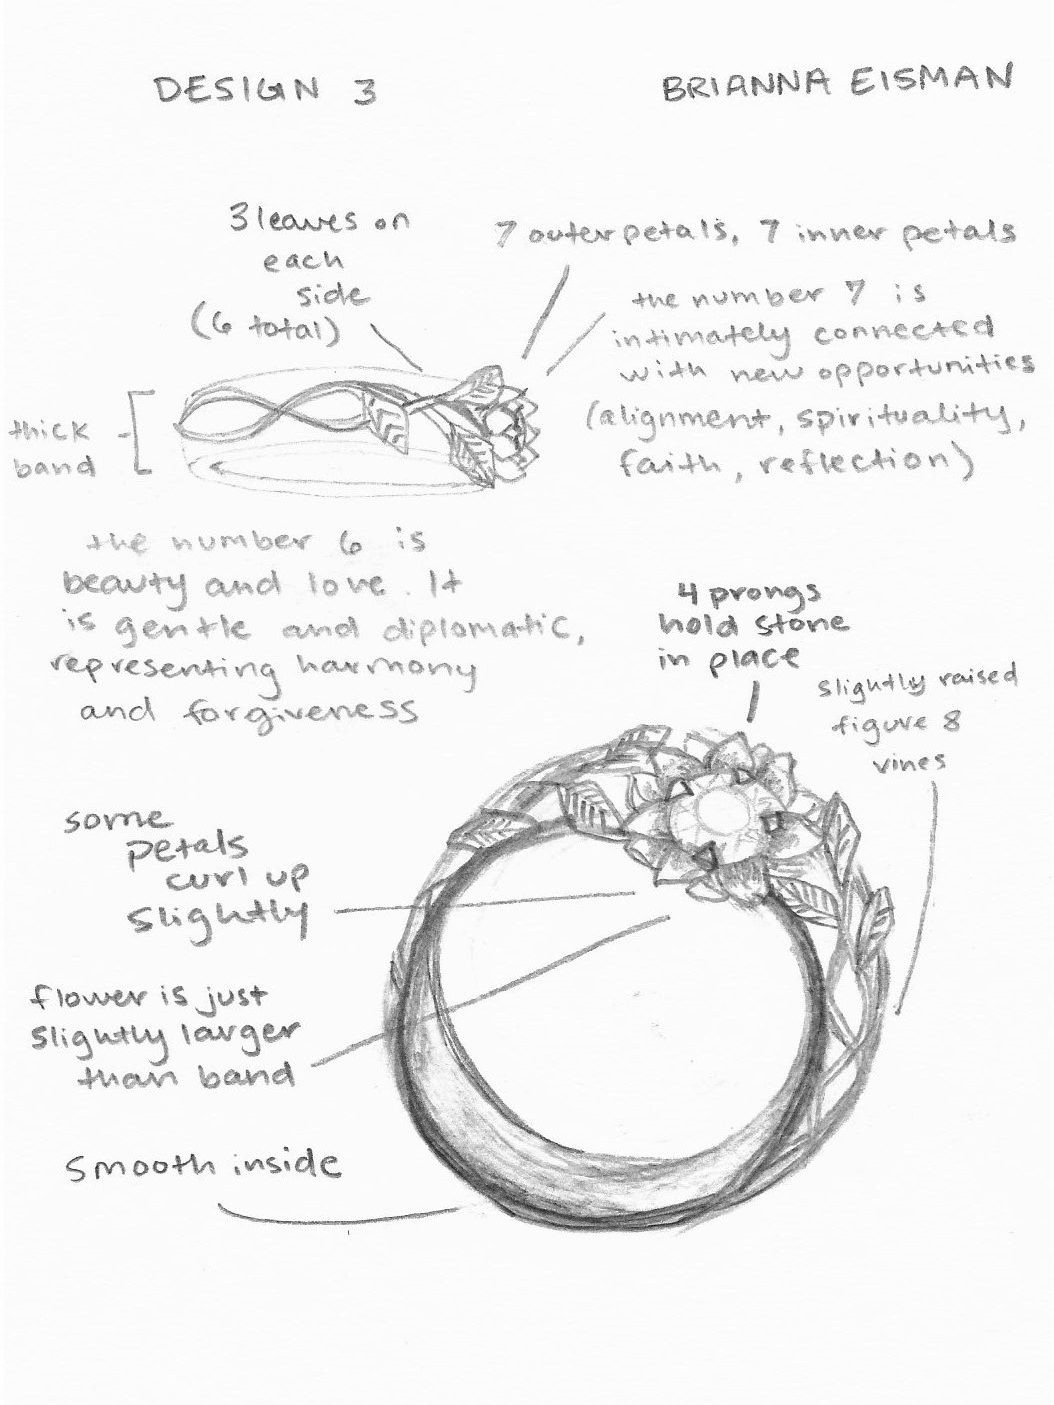 DESIGN 3
BRIANNA EISMAN
3 leaves on
each
side
(6 total)
7 outer petals, 7 inner petals
the number 7 is
intimately connected
with new opportunities
(alignment, spirituality,
faith, reflection)
thick
band
the number 6 is
beauty and love. It
is gentle and diplomatic,
representing harmony
and forgiveness
4 prongs
hold stone
in place
slightly raised
figure 8
vines
some
petals
curl up
slightly
flower is just
slightly larger
than band
smooth inside